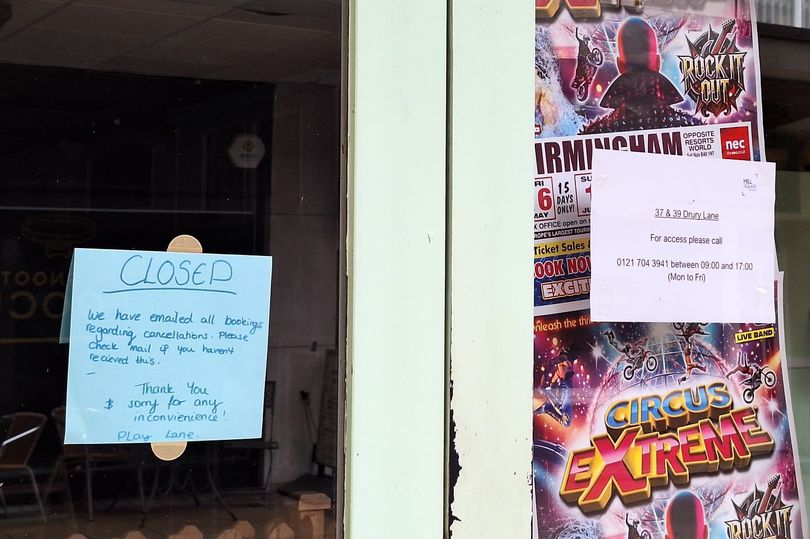 CLOSED
We have emailed all bookings
regarding cancellations. Please
check mail if you haven't
recieved this.
-
Thank You
& sorry for any
inconvienience!
Play Lane.
ROCK IT
OUT
IRMINGHAM
OPPOSITE
RESORTS
WORLD
nec
15
DAYS
ONLY!
6
MAY
Ticket Sales &
OOK NO
EXCIT
37 & 39 Drury Lane
For access please call
0121 704 3941 between 09:00 and 17:00
(Mon to Fri)
LIVE BAND
CIRCUS
EXTREME
ROCK IT